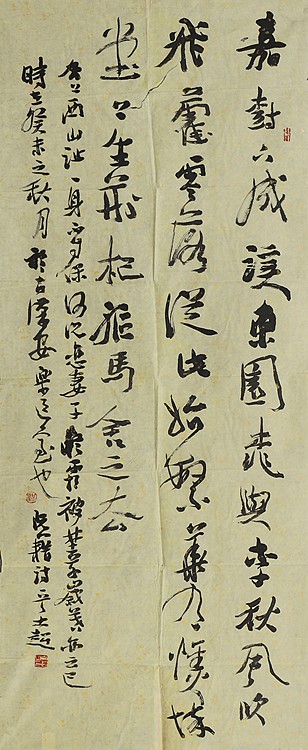 嘉樹下成蹊東園桃與李秋風吹
飛藿零落從此始繁華有憔悴
堂上生荊杞驅馬舍之去
去上西山趾一身不自保何況戀妻子凝霜被野草歲暮亦云已
時在癸未之秋月於古漢安
阮籍詩